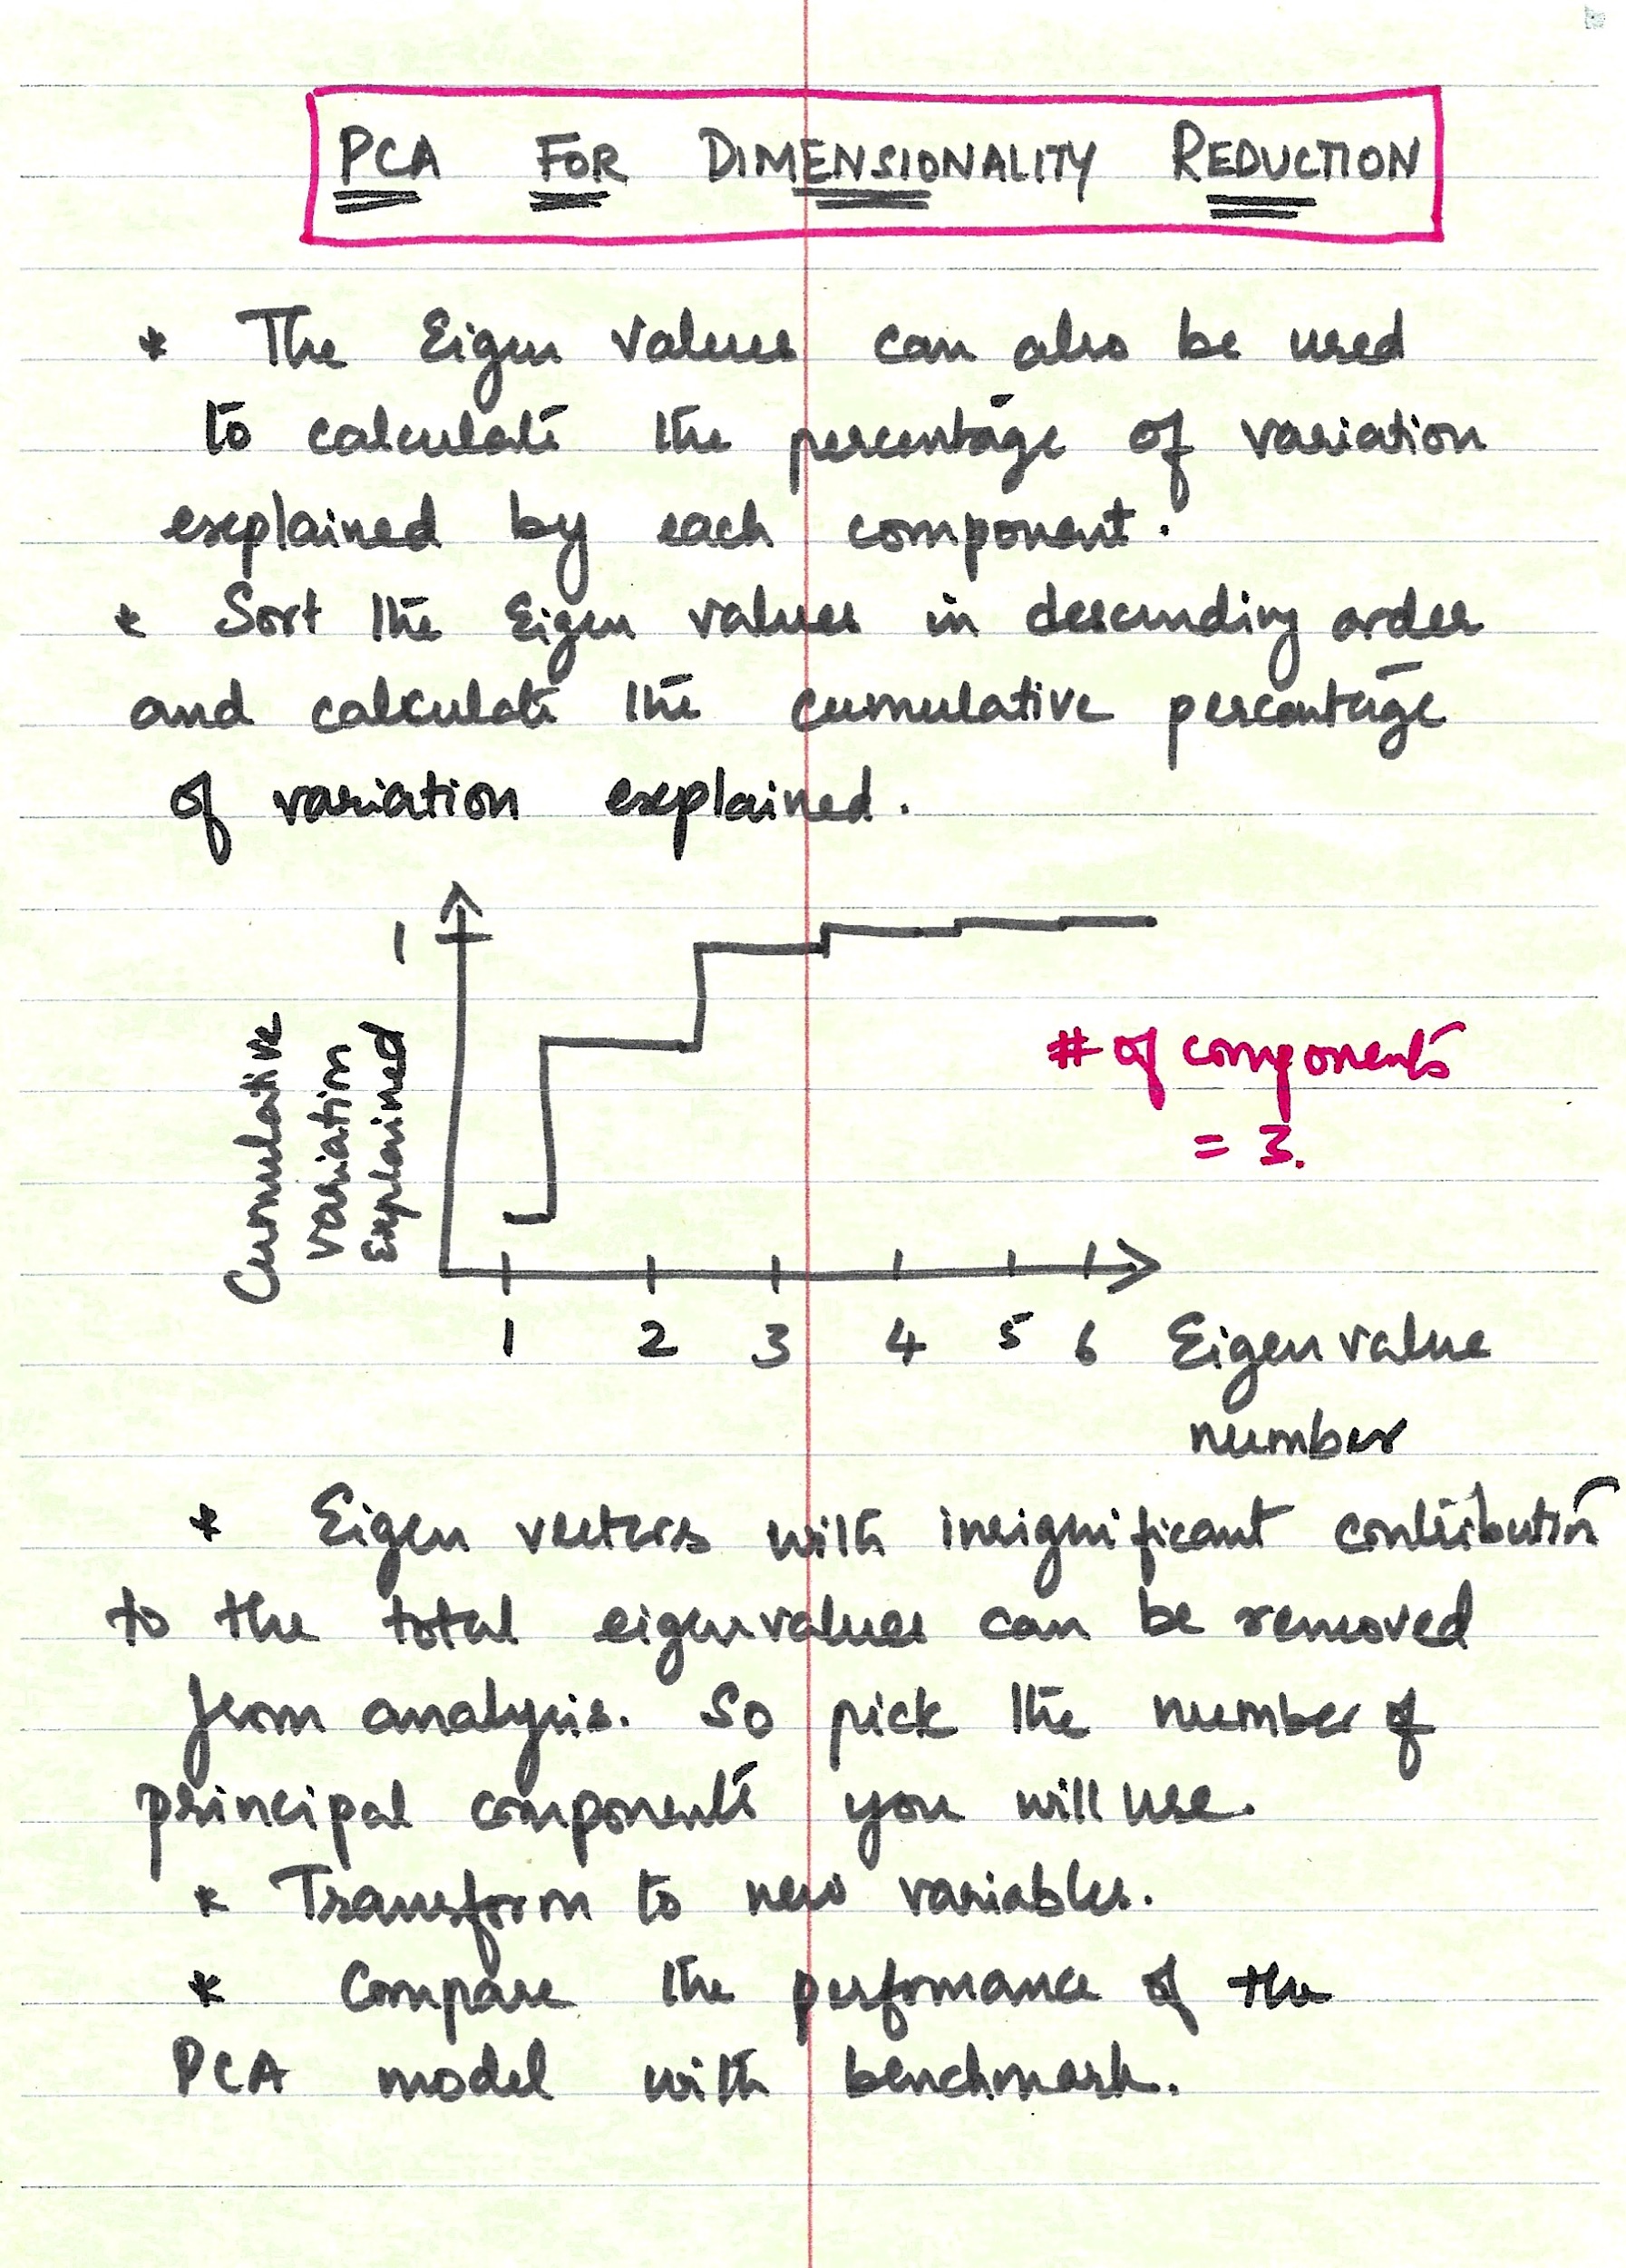 PCA FOR DIMENSIONALITY REDUCTION
* The Eigen values can also be used
to calculate the percentage of variation
explained by each component.
* Sort the Eigen values in descending order
and calculate the cumulative percentage
of variation explained.
1
Cumulative
variation
explained
# of components
= 3.
1 2 3 4 5 6 Eigen value
number
* Eigen vectors with insignificant contribution
to the total eigenvalues can be removed
from analysis. So pick the number of
principal components you will use.
* Transform to new variables.
* Compare the perfomance of the
PCA model with benchmark.